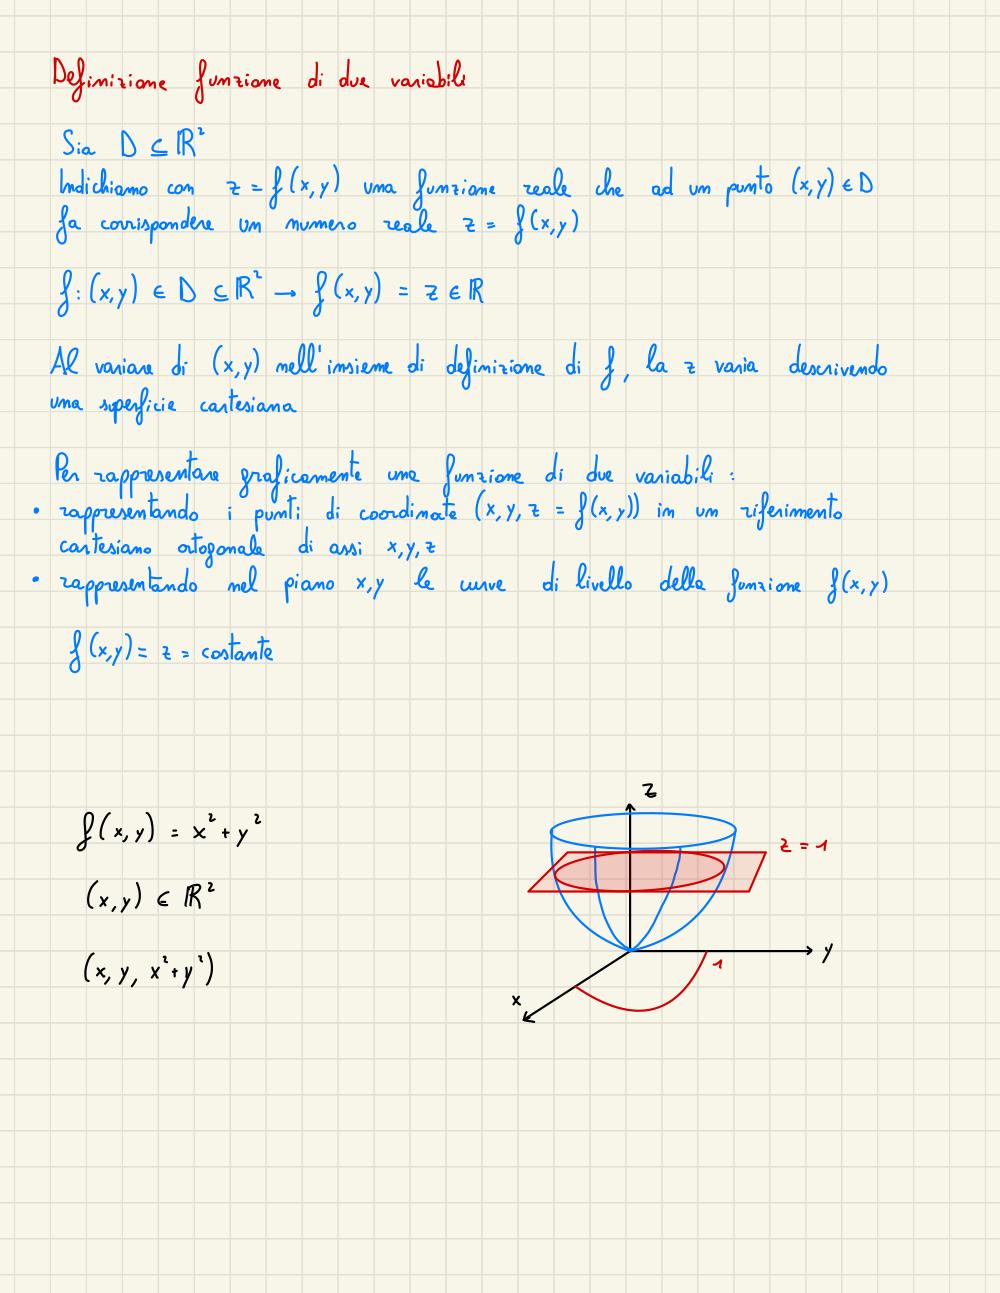 Definizione funzione di due variabili
Sia D ⊆ ℝ²
Indichiamo con z = f(x,y) una funzione reale che ad un punto (x,y) ∈ D
fa corrispondere un numero reale z = f(x,y)
f: (x,y) ∈ D ⊆ ℝ² → f(x,y) = z ∈ ℝ
Al variare di (x,y) nell'insieme di definizione di f, la z varia descrivendo
una superficie cartesiana
Per rappresentare graficamente una funzione di due variabili :
• rappresentando i punti di coordinate (x,y, z = f(x,y)) in un riferimento
cartesiano ortogonale di assi x,y,z
• rappresentando nel piano x,y le curve di livello della funzione f(x,y)
f(x,y) = z = costante
f(x,y) = x² + y²
(x,y) ∈ ℝ²
(x, y, x²+y²)
z
z = 1
y
1
x